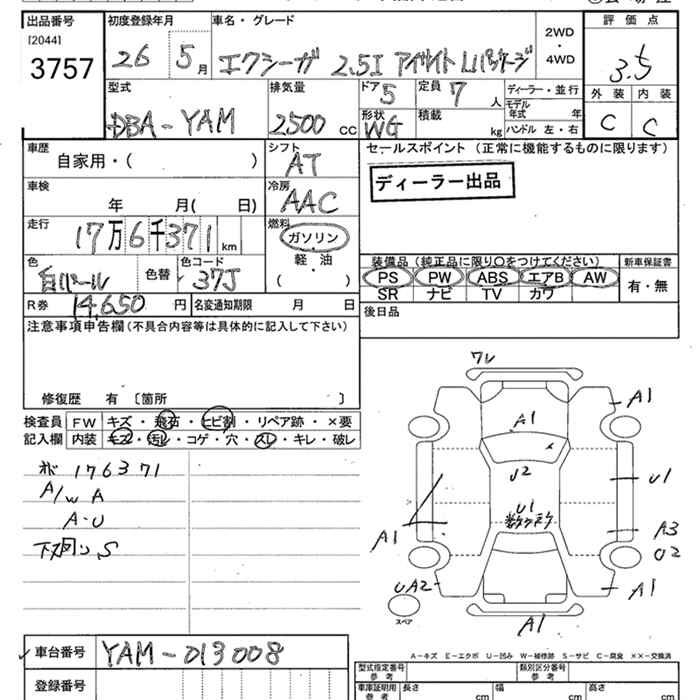 出品番号 初度登録年月 車名・グレード 2WD ・ 4WD 評価点
[2044]
3757 26 5月 エクシーガ 2.5I アイサイト Lパッケージ 3.5
型式 排気量 ドア 5 定員 7人 ディーラー・並行 外装 内装
DBA-YAM 2,500cc 形状 WG 積載 kg モデル年式 年 ハンドル 左・右 C C
車歴 シフト セールスポイント (正常に機能するものに限ります)
自家用・( ) AT
車検 冷房 ディーラー出品
年 月( 日) AAC
走行 燃料
17万6千371km ガソリン
軽・油
( )
色 色替 色コード 装備品 (純正品に限り○をつけてください) 新車保証書
白パール 37J PS PW ABS エアB AW 有・無
SR ナビ TV カワ
R券 14,650円 名変通知期限 月 日
後日品
注意事項申告欄 (不具合内容等は具体的に記入して下さい)
修復歴 有 〔箇所 〕
検査員 FW キズ・飛石・ヒビ割・リペア跡・×要
記入欄 内装 キズ・汚レ・コゲ・穴・スレ・キレ・破レ
176371
A/W A
A・U
下廻リ S
フレ
A1
A1
U2
U1
U1
数ヶ所
A3
A1
U2
UA2
A1
A1
スペア
A-キズ E-エクボ U-凹み W-補修跡 S-サビ C-腐食 ××-交換済
車台番号 YAM-013008
登録番号
型式指定番号 参考 類別区分番号 参考
車庫証明用 参考 長さ cm 幅 cm 高さ cm